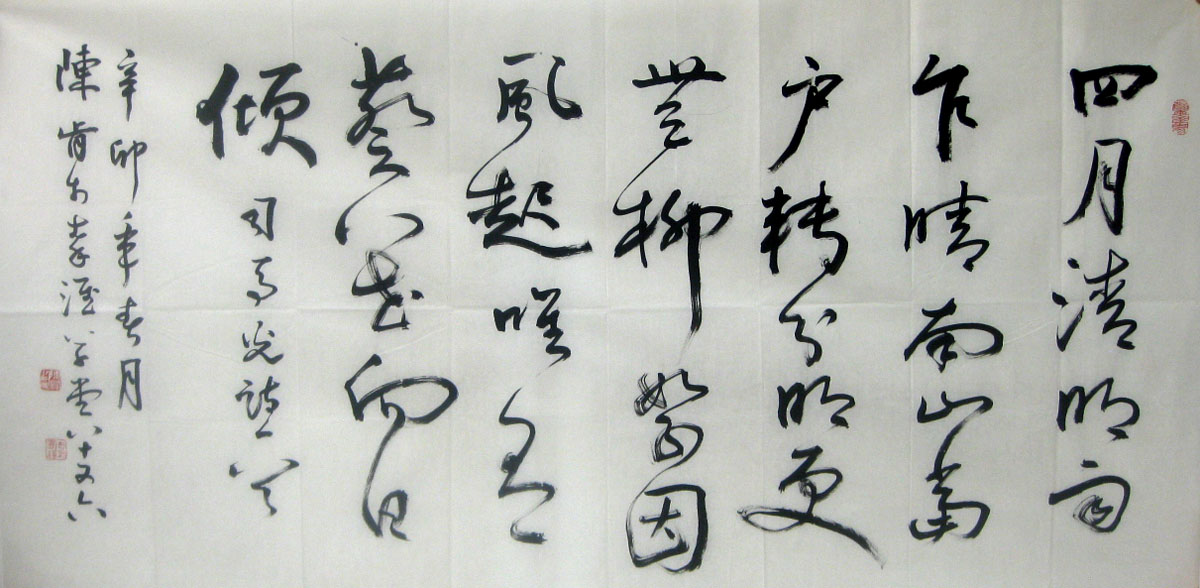 四月清明雨
乍晴南山當
户轉分明更
無柳絮因
風起唯有
葵花向日
傾
司馬光詩一首
辛卯年春月
陳肯於草堂八十又六